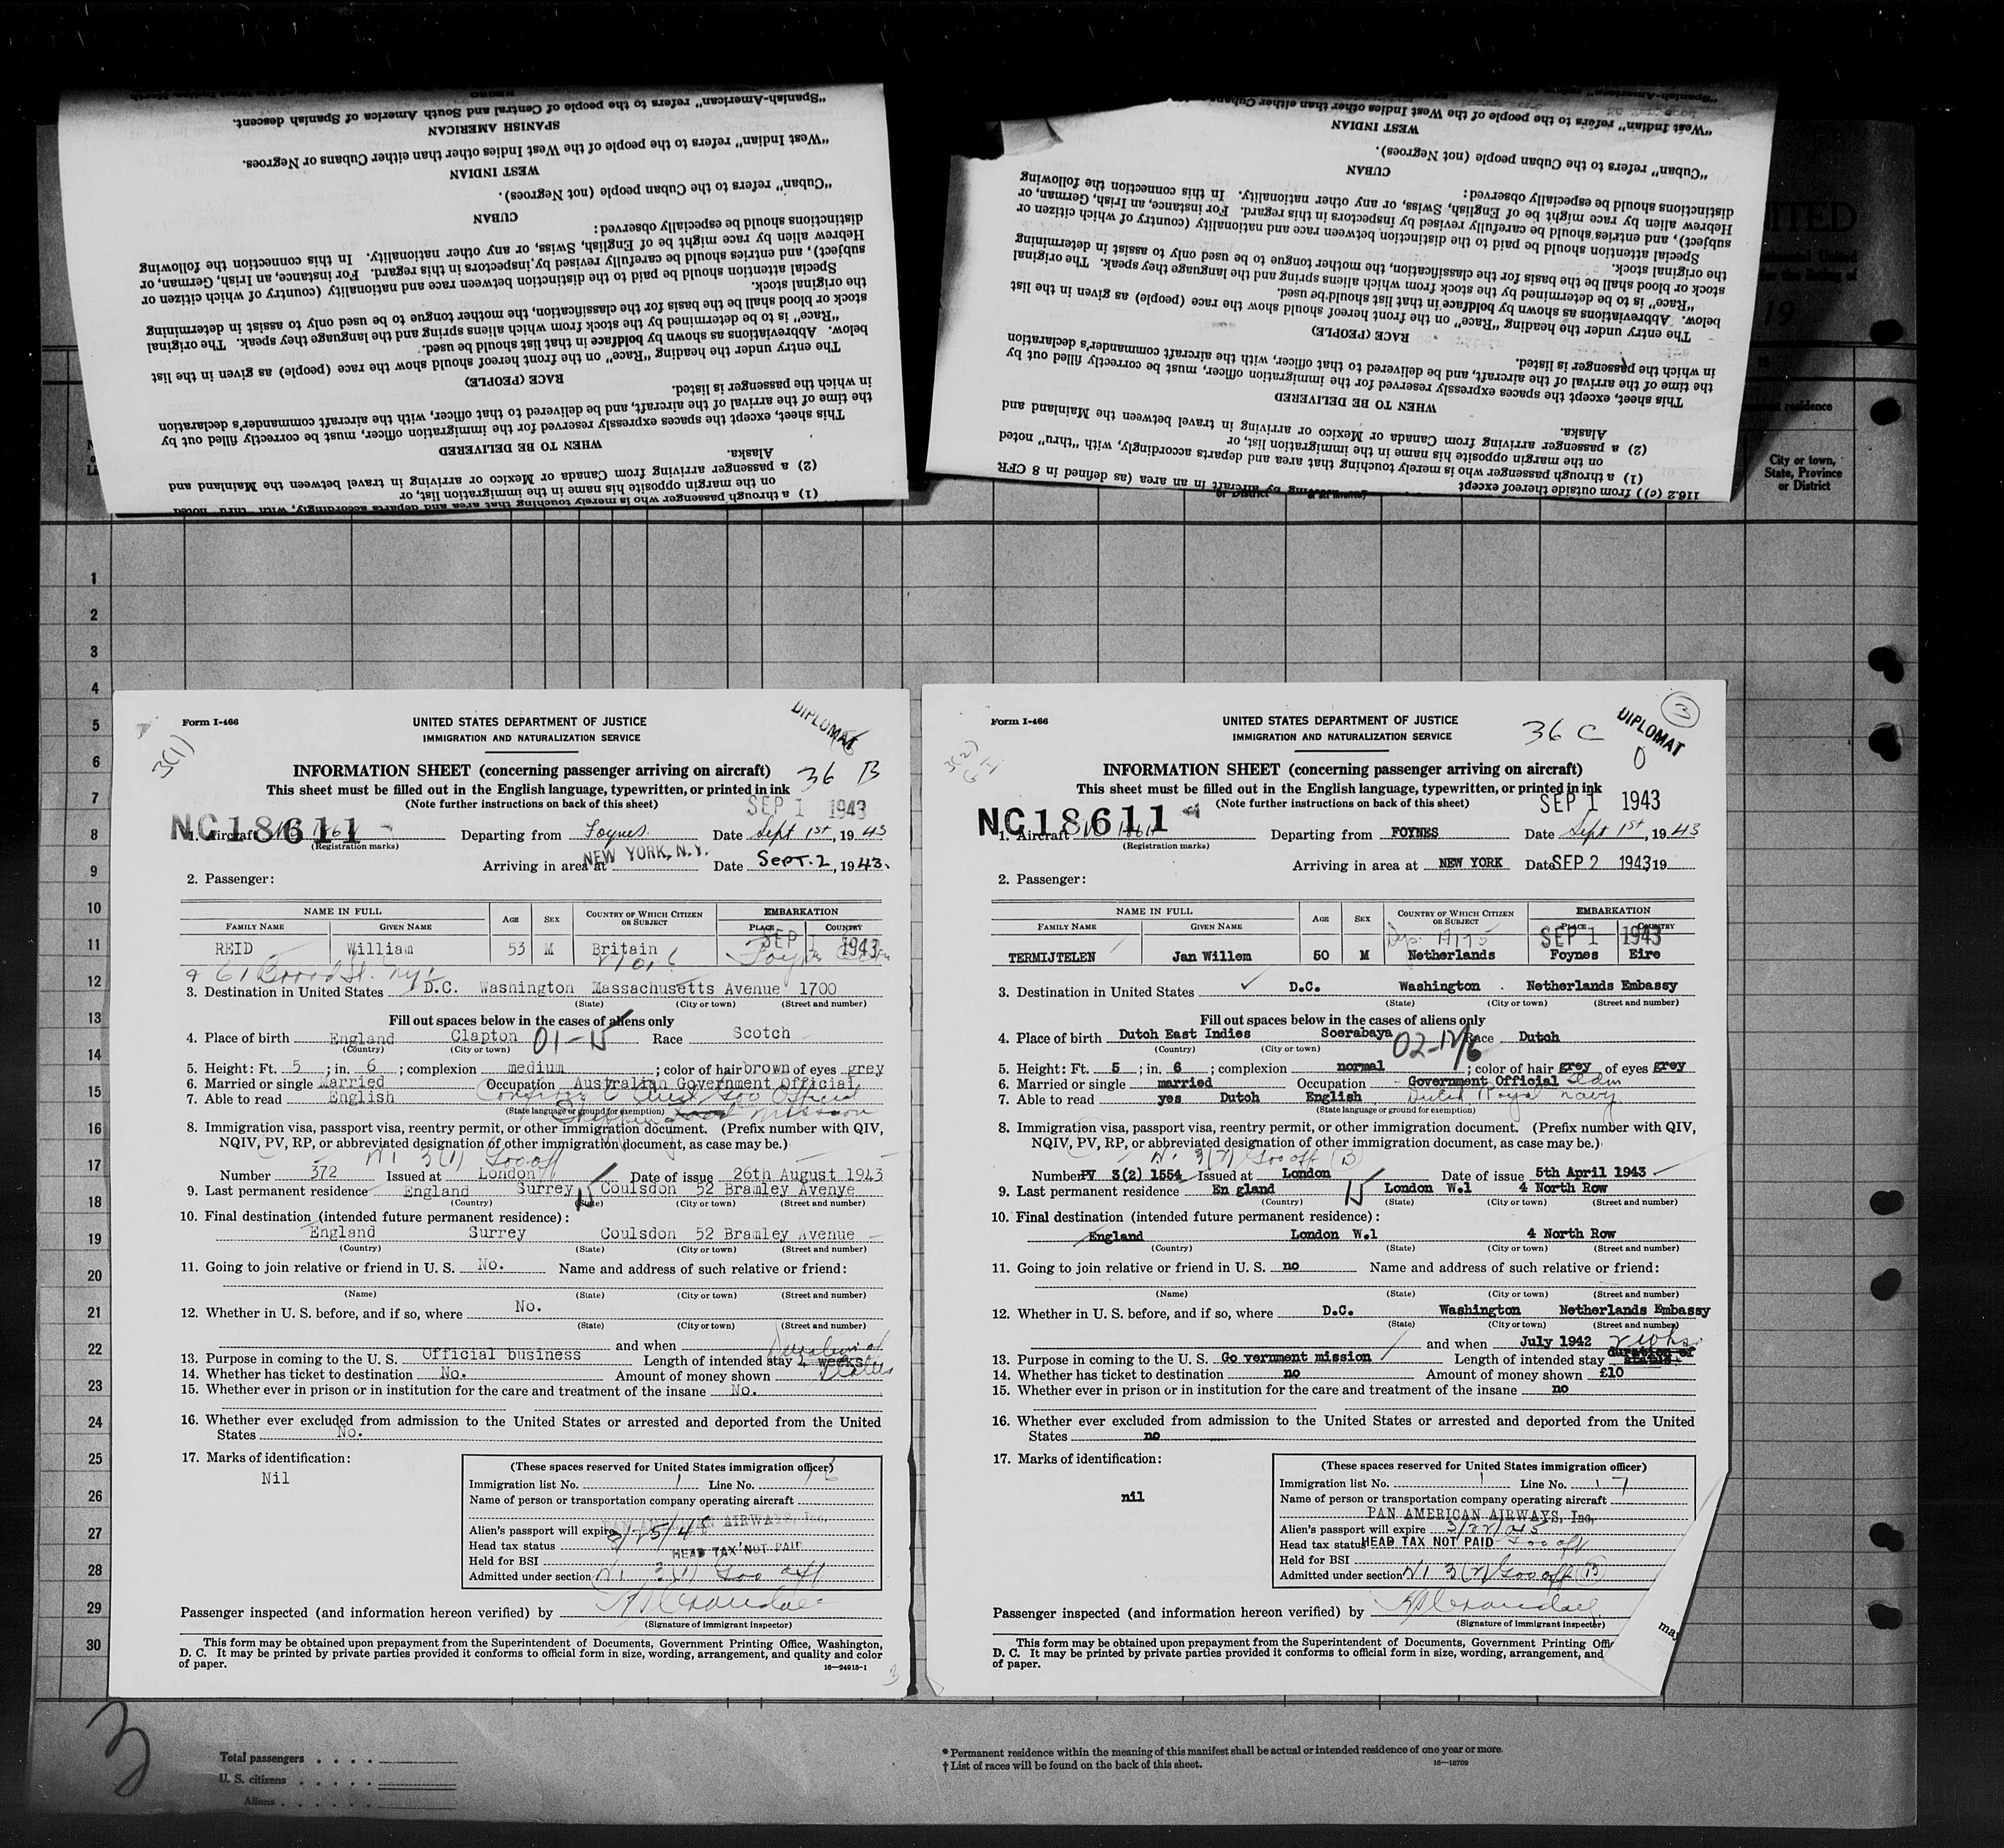 "Spanish-American" refers to the people of Central and South America of Spanish descent.
SPANISH AMERICAN
"West Indian" refers to the people of the West Indies other than either Cubans or Negroes.
WEST INDIAN
"Cuban" refers to the Cuban people (not Negroes).
CUBAN
distinctions should be especially observed:
Hebrew alien by race might be of English, Swiss, or any other nationality. In this connection the following
subject), and entries should be carefully revised by inspectors in this regard. For instance, an Irish, German, or
Special attention should be paid to the distinction between race and nationality (country of which citizen or
the original stock.
stock or blood shall be the basis for the classification, the mother tongue to be used only to assist in determining
"Race" is to be determined by the stock from which aliens spring and the language they speak. The original
below. Abbreviations as shown by boldface in that list should be used.
The entry under the heading "Race" on the front hereof should show the race (people) as given in the list
RACE (PEOPLE)
in which the passenger is listed.
the time of the arrival of the aircraft, and be delivered to that officer, with the aircraft commander's declaration
This sheet, except the spaces expressly reserved for the immigration officer, must be correctly filled out by
WHEN TO BE DELIVERED
Alaska.
(2) a passenger arriving from Canada or Mexico or arriving in travel between the Mainland and
on the margin opposite his name in the immigration list, or
(1) a through passenger who is merely touching that area and departs accordingly, with "thru" noted
"West Indian" refers to the people of the West Indies other than either Cubans
WEST INDIAN
"Cuban" refers to the Cuban people (not Negroes).
CUBAN
distinctions should be especially observed:
Hebrew alien by race might be of English, Swiss, or any other nationality. In this connection the following
subject), and entries should be carefully revised by inspectors in this regard. For instance, an Irish, German, or
Special attention should be paid to the distinction between race and nationality (country of which citizen or
the original stock.
stock or blood shall be the basis for the classification, the mother tongue to be used only to assist in determining
"Race" is to be determined by the stock from which aliens spring and the language they speak. The original
below. Abbreviations as shown by boldface in that list should be used.
The entry under the heading "Race" on the front hereof should show the race (people) as given in the list
RACE (PEOPLE)
in which the passenger is listed.
the time of the arrival of the aircraft, and be delivered to that officer, with the aircraft commander's declaration
This sheet, except the spaces expressly reserved for the immigration officer, must be correctly filled out by
WHEN TO BE DELIVERED
Alaska.
(2) a passenger arriving from Canada or Mexico or arriving in travel between the Mainland and
on the margin opposite his name in the immigration list, or
(1) a through passenger who is merely touching that area and departs accordingly, with "thru" noted
116.2 (c)) from outside thereof except
City or town,
State, Province
or District
1
2
3
4
5
6
7
8
9
10
11
12
13
14
15
16
17
18
19
20
21
22
23
24
25
26
27
28
29
30
Form I-466
UNITED STATES DEPARTMENT OF JUSTICE
IMMIGRATION AND NATURALIZATION SERVICE
DIPLOMAT
3(1)
INFORMATION SHEET (concerning passenger arriving on aircraft) 36 B
This sheet must be filled out in the English language, typewritten, or printed in ink
(Note further instructions on back of this sheet) SEP 1 1943
NC18611
1. Aircraft Departing from Foynes Date Sept 1st, 1943
(Registration marks)
Arriving in area at NEW YORK, N.Y. Date SEPT. 2, 1943.
2. Passenger:
NAME IN FULL AGE SEX COUNTRY OF WHICH CITIZEN OR SUBJECT EMBARKATION
FAMILY NAME GIVEN NAME PLACE COUNTRY
SEP 1 1943
REID William 53 M Britain Foynes
61 Broad St. NYC
3. Destination in United States D.C. Washington Massachusetts Avenue 1700
(State) (City or town) (Street and number)
Fill out spaces below in the cases of aliens only
4. Place of birth England Clapton 01-15 Race Scotch
(Country) (City or town)
5. Height: Ft. 5; in. 6; complexion medium; color of hair brown of eyes grey
6. Married or single Married Occupation Australian Government Official
7. Able to read English
(State language or ground for exemption) Shipping Mission
8. Immigration visa, passport visa, reentry permit, or other immigration document. (Prefix number with QIV,
NQIV, PV, RP, or abbreviated designation of other immigration document, as case may be.)
3(1) Gov off
Number 372 Issued at London Date of issue 26th August 1943
9. Last permanent residence England Surrey 15 Coulsdon 52 Bramley Avenye
(Country) (State) (City or town) (Street and number)
10. Final destination (intended future permanent residence):
England Surrey Coulsdon 52 Bramley Avenue
(Country) (State) (City or town) (Street and number)
11. Going to join relative or friend in U. S. No. Name and address of such relative or friend:
(Name) (State) (City or town) (Street and number)
12. Whether in U. S. before, and if so, where No.
(State) (City or town) (Street and number)
and when Duration of
13. Purpose in coming to the U. S. Official business Length of intended stay 4 weeks status
14. Whether has ticket to destination No. Amount of money shown
15. Whether ever in prison or in institution for the care and treatment of the insane No.
16. Whether ever excluded from admission to the United States or arrested and deported from the United
States No.
17. Marks of identification:
Nil
(These spaces reserved for United States immigration officer)
Immigration list No. 1 Line No. 16
Name of person or transportation company operating aircraft
PAN AMERICAN AIRWAYS, Inc,
Alien's passport will expire
Head tax status HEAD TAX NOT PAID
Held for BSI
Admitted under section 3(1) Gov off
Passenger inspected (and information hereon verified) by
(Signature of immigrant inspector)
This form may be obtained upon prepayment from the Superintendent of Documents, Government Printing Office, Washington,
D. C. It may be printed by private parties provided it conforms to official form in size, wording, arrangement, and quality and color
of paper. 16—24915-1
3
Form I-466
UNITED STATES DEPARTMENT OF JUSTICE
IMMIGRATION AND NATURALIZATION SERVICE
36 C DIPLOMAT
3(2)
INFORMATION SHEET (concerning passenger arriving on aircraft)
This sheet must be filled out in the English language, typewritten, or printed in ink
(Note further instructions on back of this sheet) SEP 1 1943
NC18611
1. Aircraft Departing from FOYNES Date Sept 1st, 1943
(Registration marks)
Arriving in area at NEW YORK Date SEP 2 1943 19
2. Passenger:
NAME IN FULL AGE SEX COUNTRY OF WHICH CITIZEN OR SUBJECT EMBARKATION
FAMILY NAME GIVEN NAME PLACE COUNTRY
SEP 1 1943
TERMIJTELEN Jan Willem 50 M Netherlands Foynes Eire
3. Destination in United States D.C. Washington Netherlands Embassy
(State) (City or town) (Street and number)
Fill out spaces below in the cases of aliens only
4. Place of birth Dutch East Indies Soerabaya Race Dutch
(Country) (City or town)
5. Height: Ft. 5; in. 6; complexion normal; color of hair grey of eyes grey
6. Married or single married Occupation Government Official
7. Able to read yes Dutch English Dutch Royal Navy
(State language or ground for exemption)
8. Immigration visa, passport visa, reentry permit, or other immigration document. (Prefix number with QIV,
NQIV, PV, RP, or abbreviated designation of other immigration document, as case may be.)
3(2) Gov off (B)
Number PV 3(2) 1554 Issued at London Date of issue 5th April 1943
9. Last permanent residence En gland 15 London W.1 4 North Row
(Country) (State) (City or town) (Street and number)
10. Final destination (intended future permanent residence):
England London W.1 4 North Row
(Country) (State) (City or town) (Street and number)
11. Going to join relative or friend in U. S. no Name and address of such relative or friend:
(Name) (State) (City or town) (Street and number)
12. Whether in U. S. before, and if so, where D.C. Washington Netherlands Embassy
(State) (City or town) (Street and number)
and when July 1942 2 wks.
13. Purpose in coming to the U. S. Go vernment mission Length of intended stay duration of status
14. Whether has ticket to destination no Amount of money shown £10
15. Whether ever in prison or in institution for the care and treatment of the insane no
16. Whether ever excluded from admission to the United States or arrested and deported from the United
States no
17. Marks of identification:
nil
(These spaces reserved for United States immigration officer)
Immigration list No. 1 Line No. 17
Name of person or transportation company operating aircraft
PAN AMERICAN AIRWAYS, Inc,
Alien's passport will expire 3/22/45
Head tax status HEAD TAX NOT PAID Gov off
Held for BSI
Admitted under section 3(2) Gov off (B)
Passenger inspected (and information hereon verified) by
(Signature of immigrant inspector)
This form may be obtained upon prepayment from the Superintendent of Documents, Government Printing
D. C. It may be printed by private parties provided it conforms to official form in size, wording, arrangement, and
of paper.
may
3
Total passengers . . . .
U. S. citizens . . . . .
Aliens . . . . . .
* Permanent residence within the meaning of this manifest shall be actual or intended residence of one year or more.
† List of races will be found on the back of this sheet. 16—18709